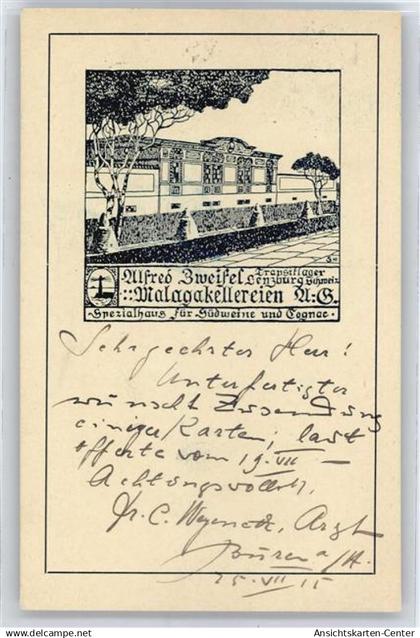 Alfred Zweifel Transitlager
Lenzburg Schweiz
:: Malagakellereien A:G.
- Spezialhaus für Südweine und Cognac -
Sehr geehrter Herr!
Unterfertigter
wünscht Zusendung
einiger Karten, laut
Offerte vom 19. VII –
Achtungsvollst,
Dr. C. Arzt
Büren a/A.
25. VII 15
© Ansichtskarten-Center